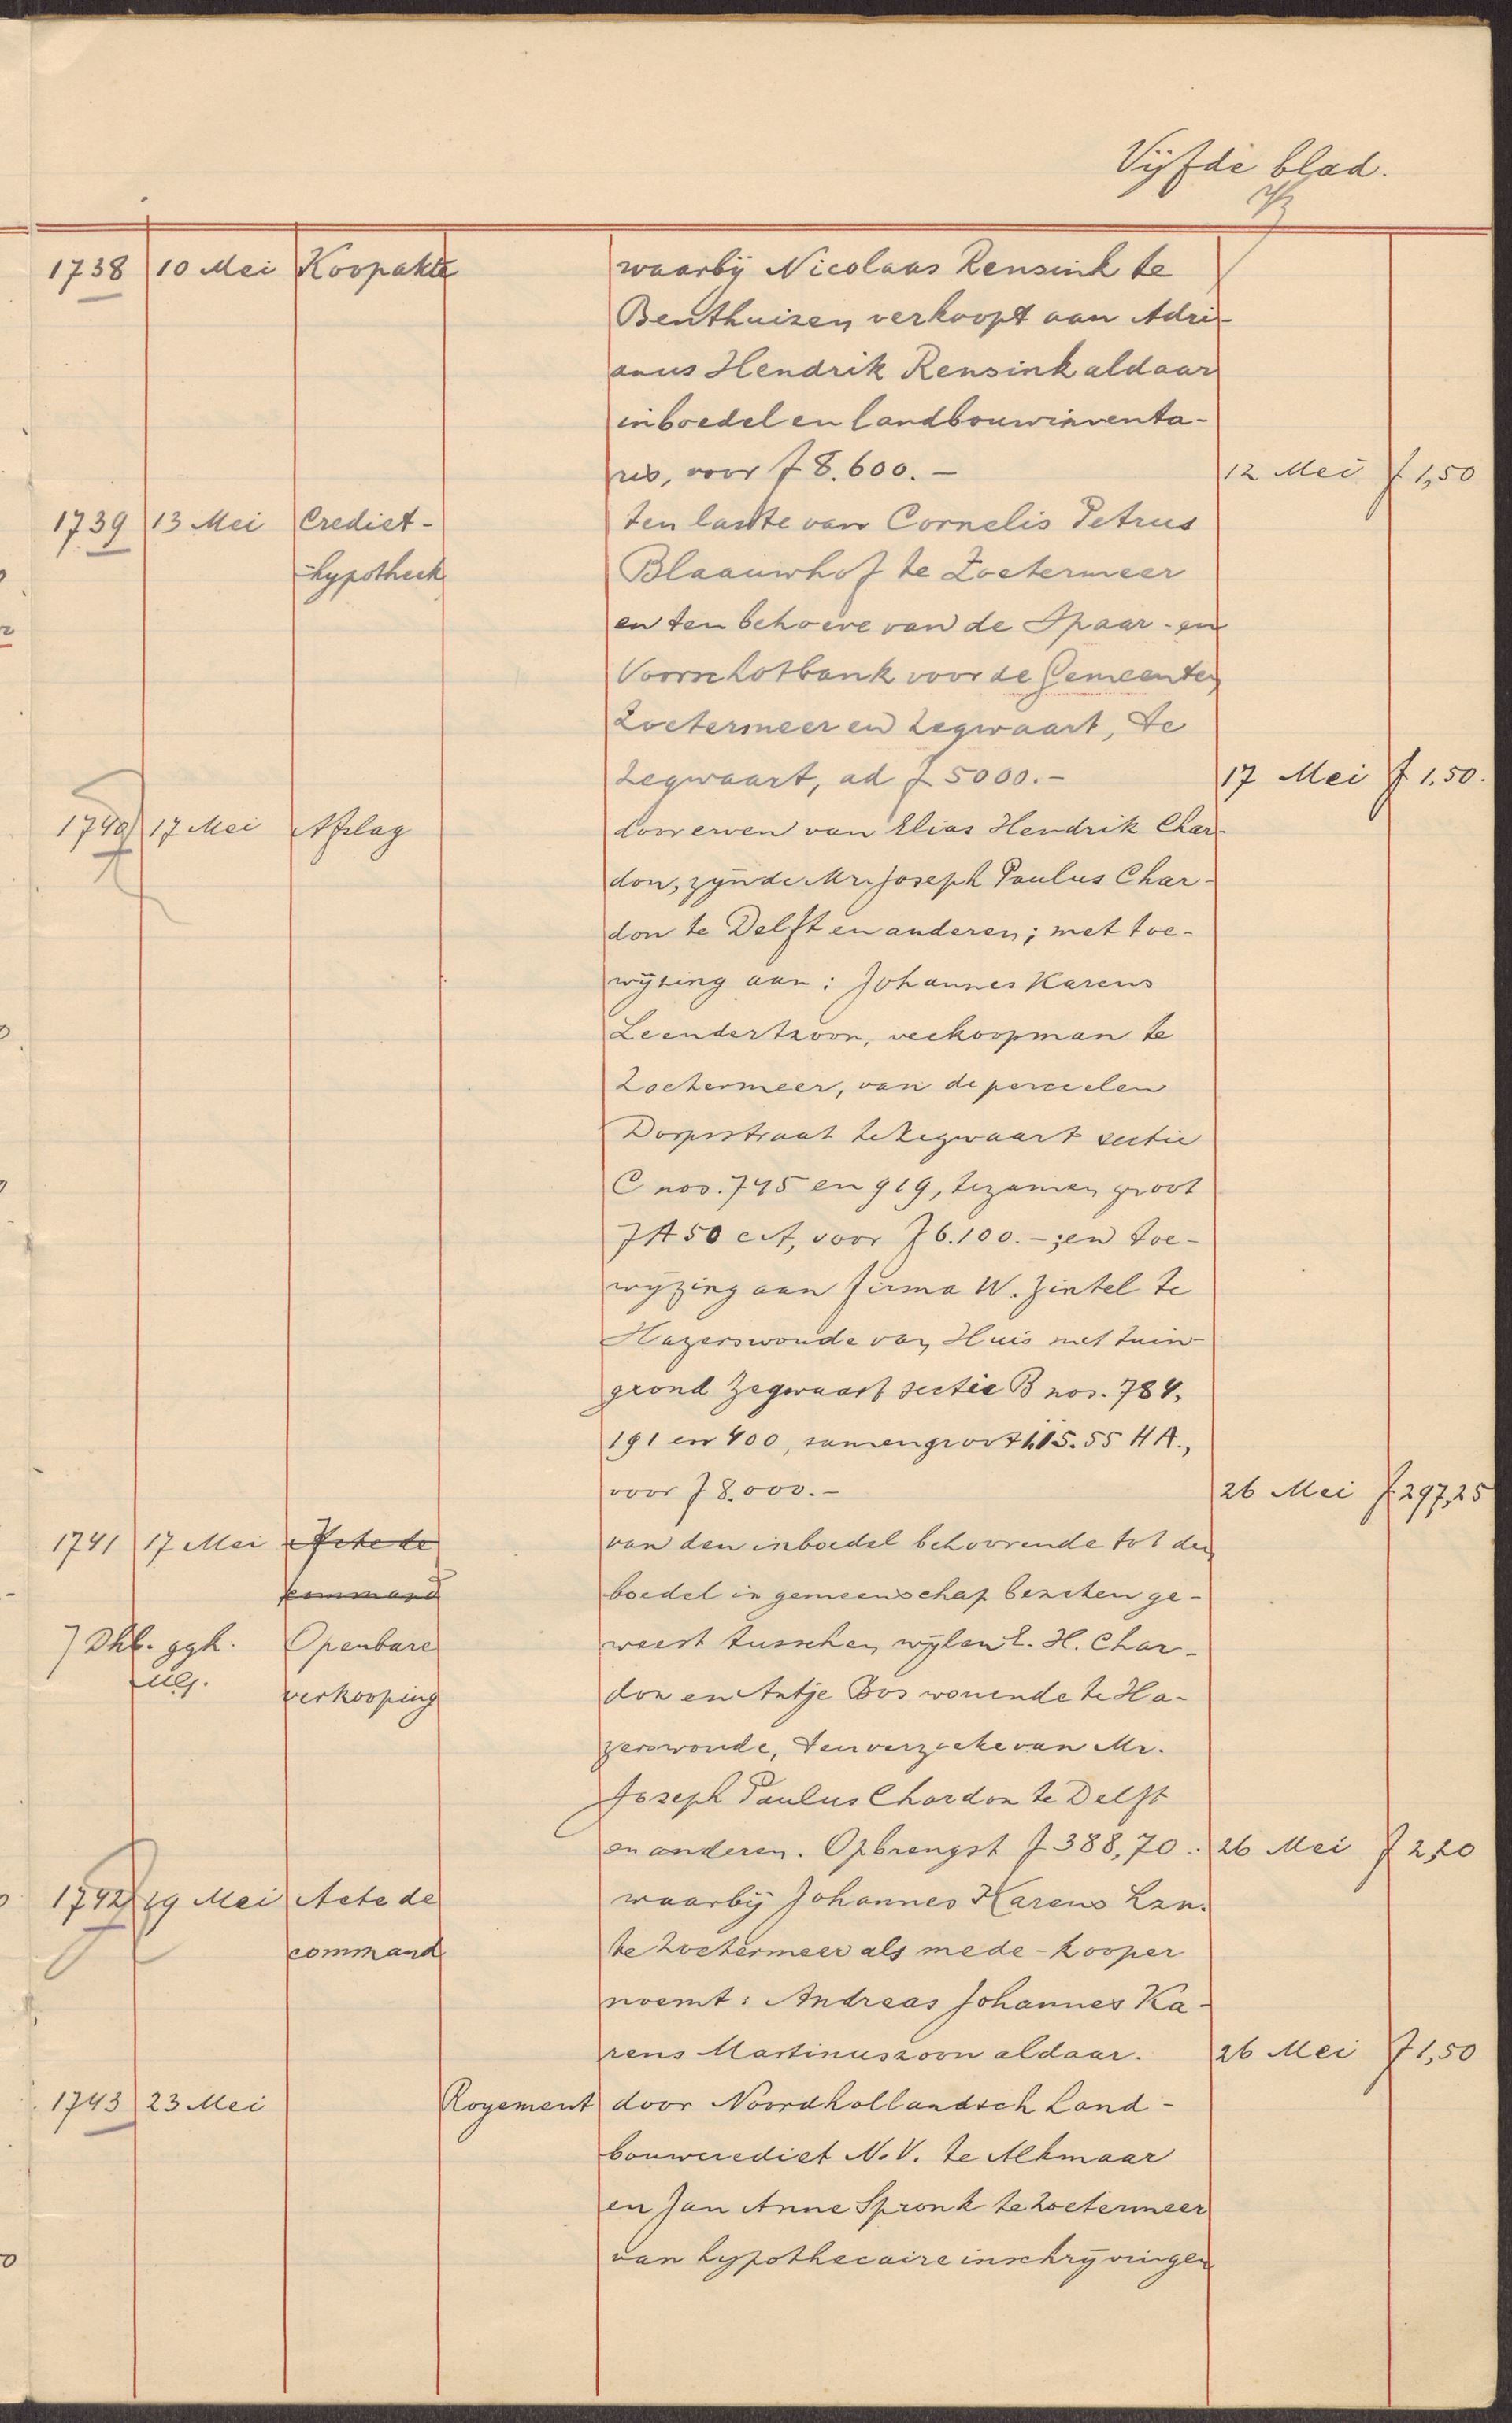 Vijfde blad.
1738 10 Mei Koopakte waarbij Nicolaas Rensink te
Benthuizen verkoopt aan Adri-
anus Hendrik Rensink aldaar
inboedel en landbouwinventa-
ris, voor f 8.600.- 12 Mei f 1,50
1739 13 Mei Crediet- ten laste van Cornelis Petrus
hypotheek Blaauwhof te Zoetermeer
en ten behoeve van de Spaar- en
Voorschotbank voor de Gemeenten
Zoetermeer en Zegwaart, te
Zegwaart, ad f 5000.- 17 Mei f 1.50.
1740 17 Mei Afslag door erven van Elias Hendrik Char-
don, zijnde Mr. Joseph Paulus Char-
don te Delft en anderen; met toe-
wijzing aan: Johannes Karens
Leendertzoon, veekoopman te
Zoetermeer, van de perceelen
Dorpsstraat te Zegwaart sectie
C nos. 745 en 919, tezamen groot
7A 50 cA, voor f 6.100.- ; en toe-
wijzing aan firma W. Zintel te
Hazerswoude van Huis met tuin-
grond Zegwaart sectie B nos. 784,
191 en 400, samen groot 1.15.55 HA.,
voor f 8.000.- 26 Mei f 297,25
1741 17 Mei Acte de van den inboedel behoorende tot den
command boedel in gemeenschap bezeten ge-
7 Dhb. ggk. Openbare weest tusschen wijlen E. H. Char-
verkooping don en Antje Bos wonende te Ha-
zerswoude, ten verzoeke van Mr.
Joseph Paulus Chardon te Delft
en anderen. Opbrengst f 388,70. 26 Mei f 2,20
1742 19 Mei Acte de waarbij Johannes Karens Lzn.
command te Zoetermeer als mede-kooper
noemt: Andreas Johannes Ka-
rens Martinuszoon aldaar. 26 Mei f 1,50
1743 23 Mei Royement door Noordhollandsch Land-
bouwcrediet N.V. te Alkmaar
en Jan Anne Spronk te Zoetermeer
van hypothecaire inschrijvingen